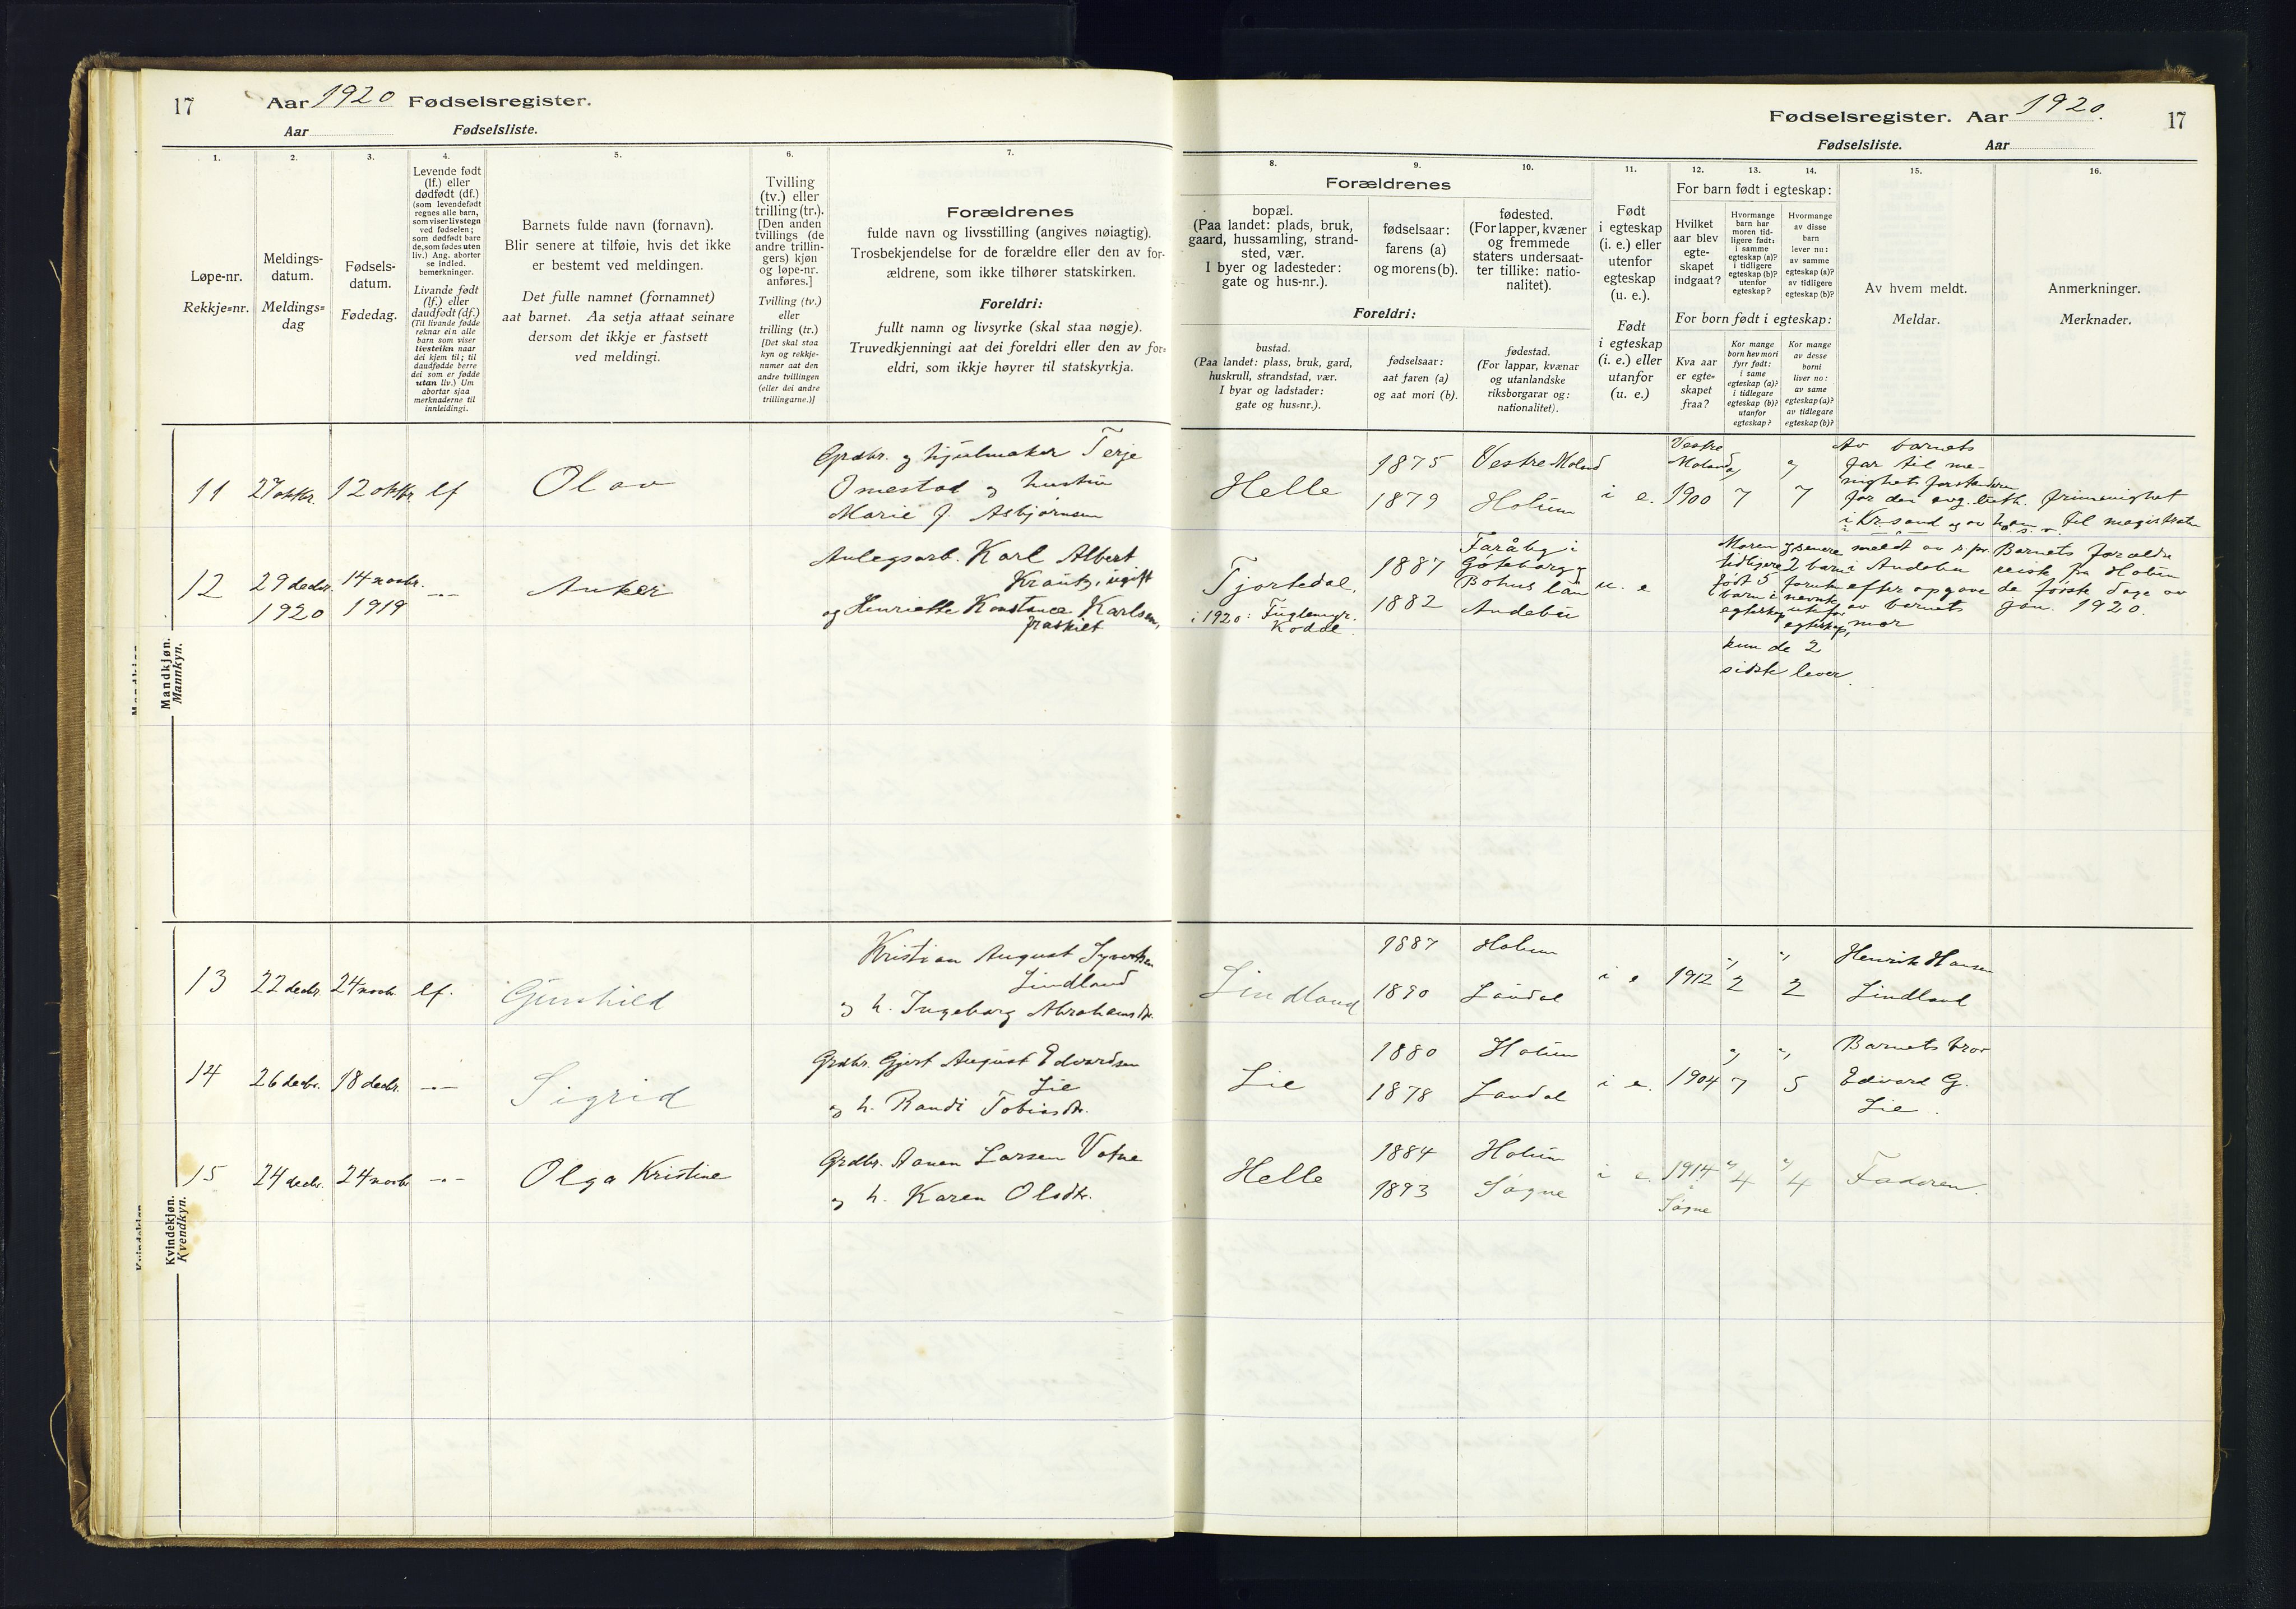 17 Aar 1920 Fødselsregister.
Aar Fødselsliste.
1. 2. 3. 4. 5. 6. 7.
Løpe-nr.
Rekkje-nr.
Meldings-
datum.
Meldings-
dag
Fødsels-
datum.
Fødedag.
Levende født
(lf.) eller
dødfødt (df.)
(som levendefødt
regnes alle barn,
som viser livstegn
ved fødselen;
som dødfødt bare
de, som fødes uten
liv.) Ang. aborter
se indled.
bemerkninger.
Livande født
(lf.) eller
daudfødt (df.)
(Til livande fødde
reknar ein alle
barn som viser
livsteikn naar
dei kjem til; til
daudfødde berre
dei som er fødde
utan liv.) Um
abortar sjaa
merknaderne til
innleidingi.
Barnets fulde navn (fornavn).
Blir senere at tilføie, hvis det ikke
er bestemt ved meldingen.
Det fulle namnet (fornamnet)
aat barnet. Aa setja attaat seinare
dersom det ikkje er fastsett
ved meldingi.
Tvilling
(tv.) eller
trilling (tr.).
[Den anden
tvillings (de
andre trillin-
gers) kjøn
og løpe-nr.
anføres.]
Tvilling (tv.)
eller
trilling (tr.)
[Det skal staa
kyn og rekkje-
numer aat den
andre tvillingen
(eller dei andre
trillingarne.)]
Forældrenes
fulde navn og livsstilling (angives nøiagtig).
Trosbekjendelse for de forældre eller den av for-
ældrene, som ikke tilhører statskirken.
Foreldri:
fullt namn og livsyrke (skal staa nøgje).
Truvedkjenningi aat dei foreldri eller den av for-
eldri, som ikkje høyrer til statskyrkja.
Mandkjøn.
Mannkyn.
11 27 oktbr. 12 oktbr. lf Olav
Grdbr. og hjulmaker Terje
Omestad og hustru
Marie J. Asbjørnsen
12 29 decbr. 1920 14 novbr. 1919 -"- Anker
Anlegsarb. Karl Albert
Krantz, ugift
og Henriette Konstance Karlsen,
fraskilt
Kvindekjøn.
Kvendkyn.
13 22 decbr. 24 novbr. lf. Gunhild
Kristian August Syvertsen
Lindland
og h. Ingeborg Abrahamsdtr.
14 26 decbr. 18 decbr. -"- Sigrid
Grdbr. Gjert August Edvardsen
Lie
og h. Randi Tobiasdtr.
15 24 decbr. 24 novbr -"- Olga Kristine
Grdbr. Aanen Larsen Votne
og h. Karen Olsdtr.
Fødselsregister. Aar 1920. 17
Fødselsliste. Aar
8. 9. 10. 11. 12. 13. 14. 15. 16.
Forældrenes
bopæl.
(Paa landet: plads, bruk,
gaard, hussamling, strand-
sted, vær.
I byer og ladesteder:
gate og hus-nr.).
fødselsaar:
farens (a)
og morens (b).
fødested.
(For lapper, kvæner
og fremmede
staters undersaat-
ter tillike: natio-
nalitet).
Foreldri:
bustad.
(Paa landet: plass, bruk, gard,
huskrull, strandstad, vær.
I byar og ladstader:
gate og hus-nr.).
fødselsaar:
aat faren (a)
og aat mori (b).
fødestad.
(For lappar, kvænar
og utanlandske
riksborgarar og:
nationalitet).
Født
i egteskap
(i. e.) eller
utenfor
egteskap
(u. e.).
Født
i egteskap
(i. e.) eller
utanfor
(u. e.)
For barn født i egteskap:
Hvilket
aar blev
egte-
skapet
indgaat?
Hvormange
barn har
moren tid-
ligere født:
i samme
egteskap (a)?
i tidligere
egteskap (b)?
utenfor
egteskap?
Hvormange
av disse
barn
lever nu:
av samme
egteskap (a)?
av tidligere
egteskap (b)?
For born født i egteskap:
Kva aar
er egte-
skapet
fraa?
Kor mange
born hev mori
fyrr født:
i same
egteskap (a)?
i tidlegare
egteskap (b)?
utanfor
egteskap?
Kor mange
av desse
borni
liver no:
av same
egteskap (a)?
av tidlegare
egteskap (b)?
Av hvem meldt.
Meldar.
Anmerkninger.
Merknader.
Helle 1875 Vestre Moland
1879 Holum i e. Vestre Moland 1900 7 7
Av barnets
far til me-
nighetsforstanderen
for den evg. luth. frimenighet
i Kr.sand og av til magistraten
Tjortedal,
i 1920: Fuglemyr.
Kodal.
1887 1882
i
Göteborg og
Bohus län
Andebu
u. e
Moren
tidligere
født 5
barn i
egteskap
2 barn
utenfor
egteskap,
kun de 2
sidste lever.
og senere meldt av s.pr.
i Andebu
efter opgave
av barnets
mor
Barnets forældre
reiste fra Holum
de første dage av
jan. 1920.
Lindland 1887 Holum
1890 Laudal i e 1912 2 2 Henrik Hansen
Lindland
Lie 1880 Holum
1878 Laudal i e. 1904 7 5 Barnets bror
Edvard G.
Lie.
Helle 1884 Holum
1893 Søgne i e. 1914 i Søgne 4 4 Faderen.